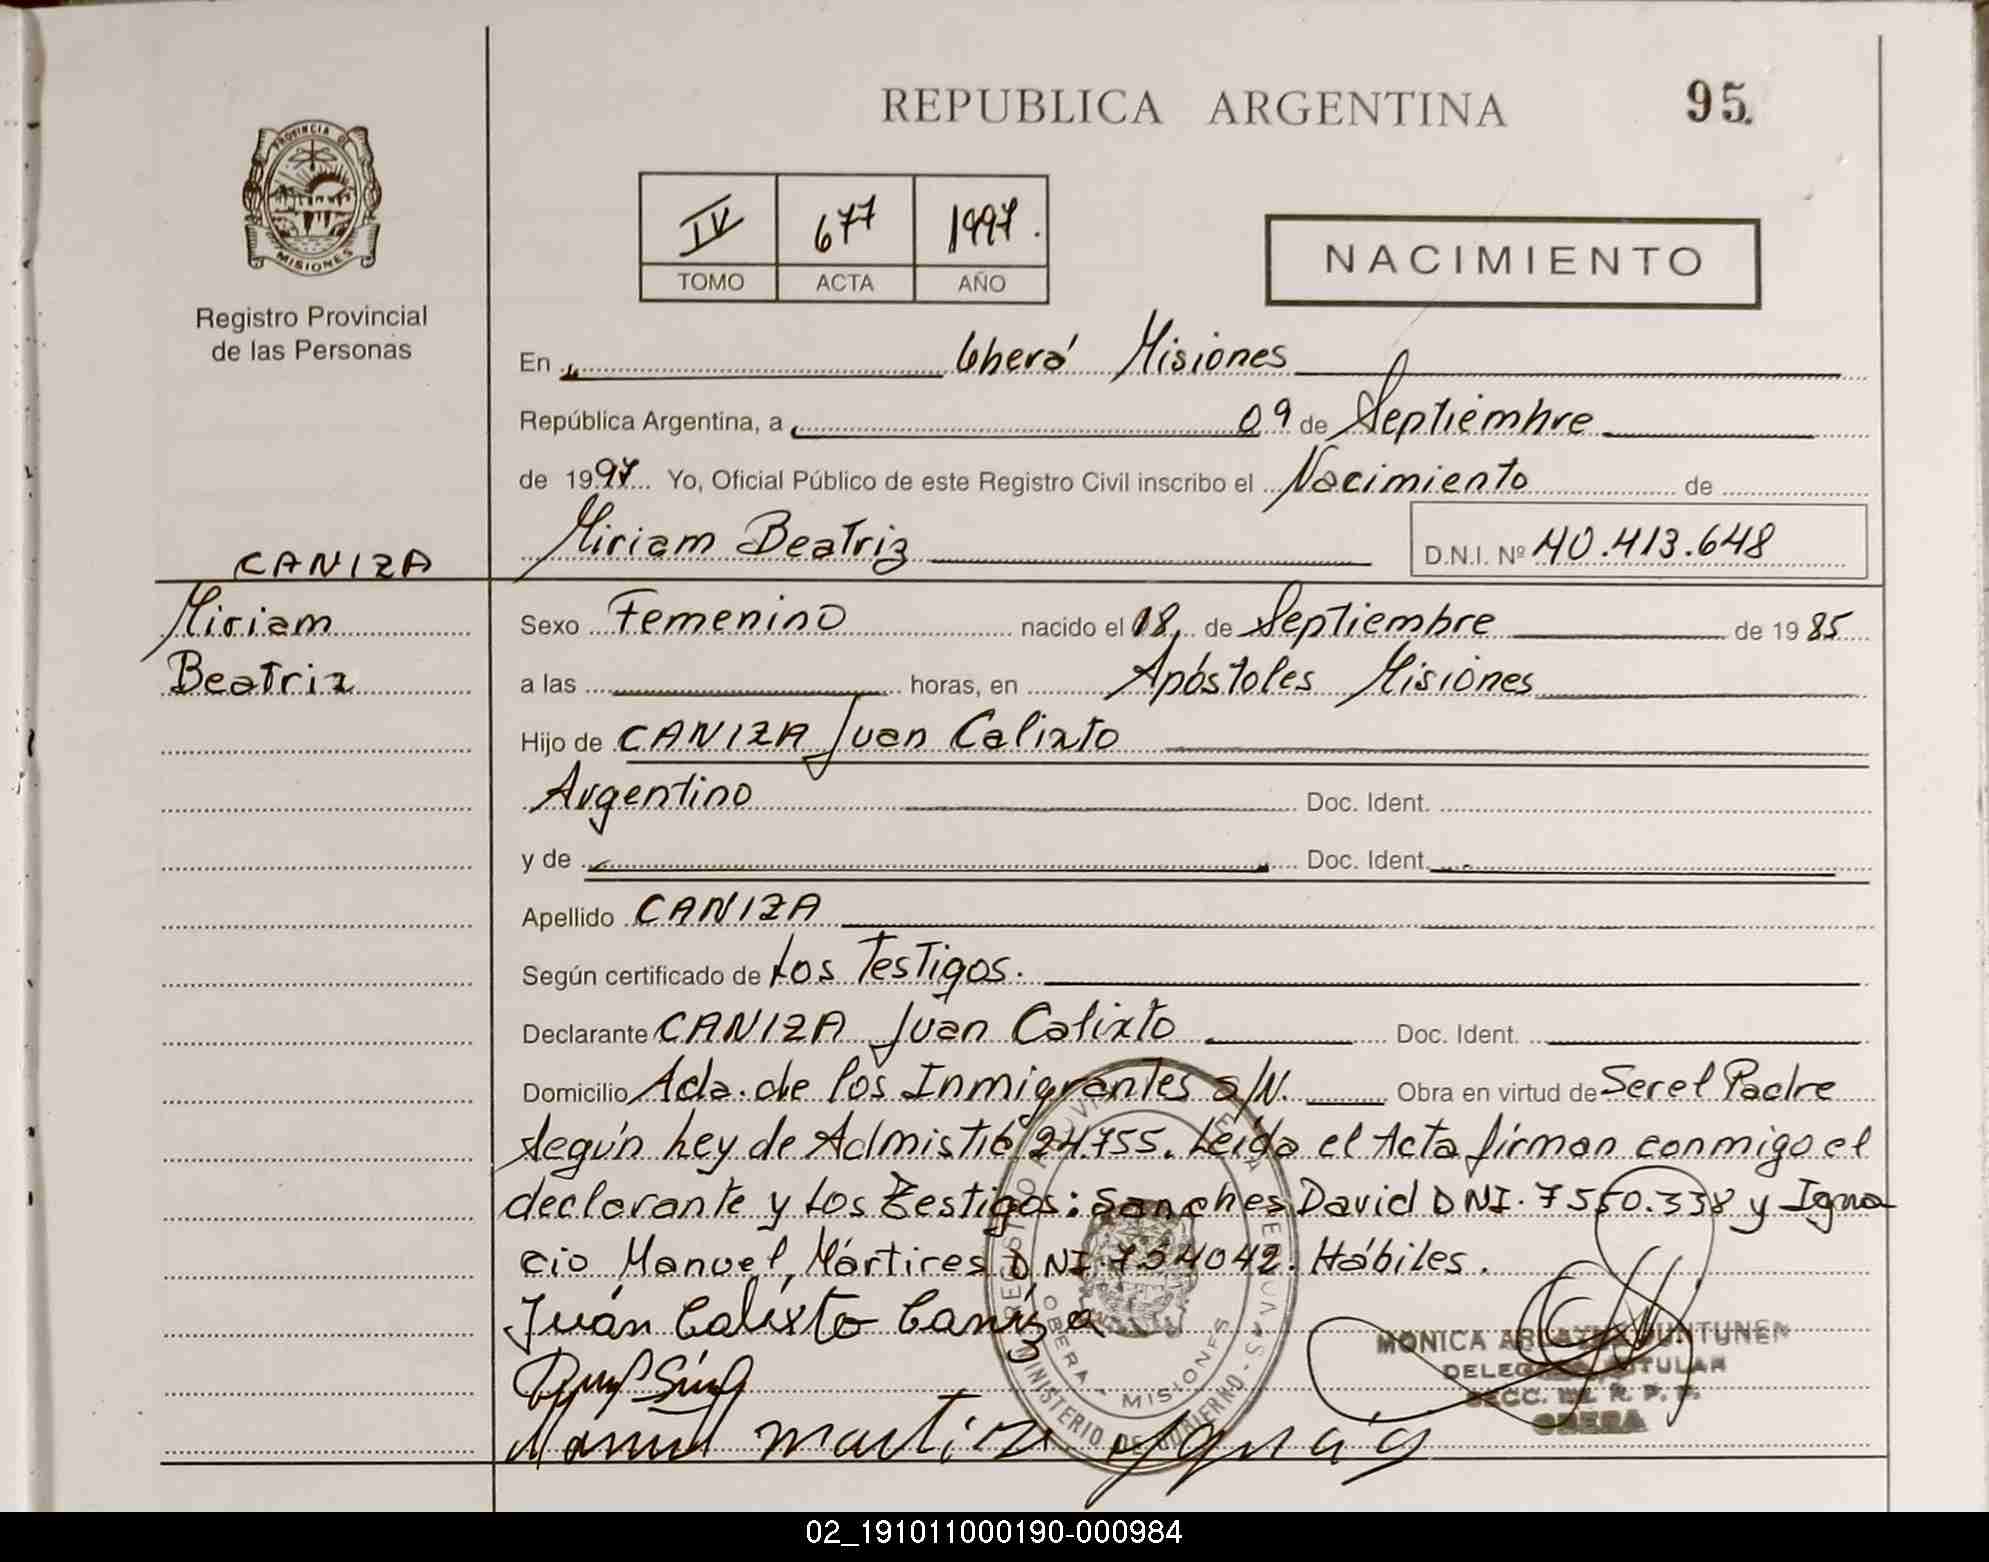 REPUBLICA ARGENTINA
95.
PROVINCIA DE
MISIONES
Registro Provincial
de las Personas
IV 677 1997.
TOMO ACTA AÑO
NACIMIENTO
En Oberá Misiones
República Argentina, a 09 de Septiembre
de 1997 Yo, Oficial Público de este Registro Civil inscribo el Nacimiento de
Miriam Beatriz D.N.I. Nº 40.413.648
CANIZA
Miriam
Beatriz
Sexo Femenino nacido el 18 de Septiembre de 1985
a las horas, en Apóstoles Misiones
Hijo de CANIZA Juan Calixto
Argentino Doc. Ident.
y de Doc. Ident.
Apellido CANIZA
Según certificado de Los Testigos.
Declarante CANIZA Juan Calixto Doc. Ident.
Domicilio Ada. de los Inmigrantes s/N. Obra en virtud de Ser el Padre
según Ley de Admistió 24.755. Leída el Acta firman conmigo el
declarante y los Testigos: Sanches David DNI. 7550.338 y Igna
cio Manuel, Mártires DNI. 734042. Hábiles.
Juán Calixto Caníza
Manuel
MONICA
DELEG TITULAR
SECC. R. P. P.
OBERA
OBERA - MISIONES
MINISTERIO DE GOBIERNO
02_191011000190-000984